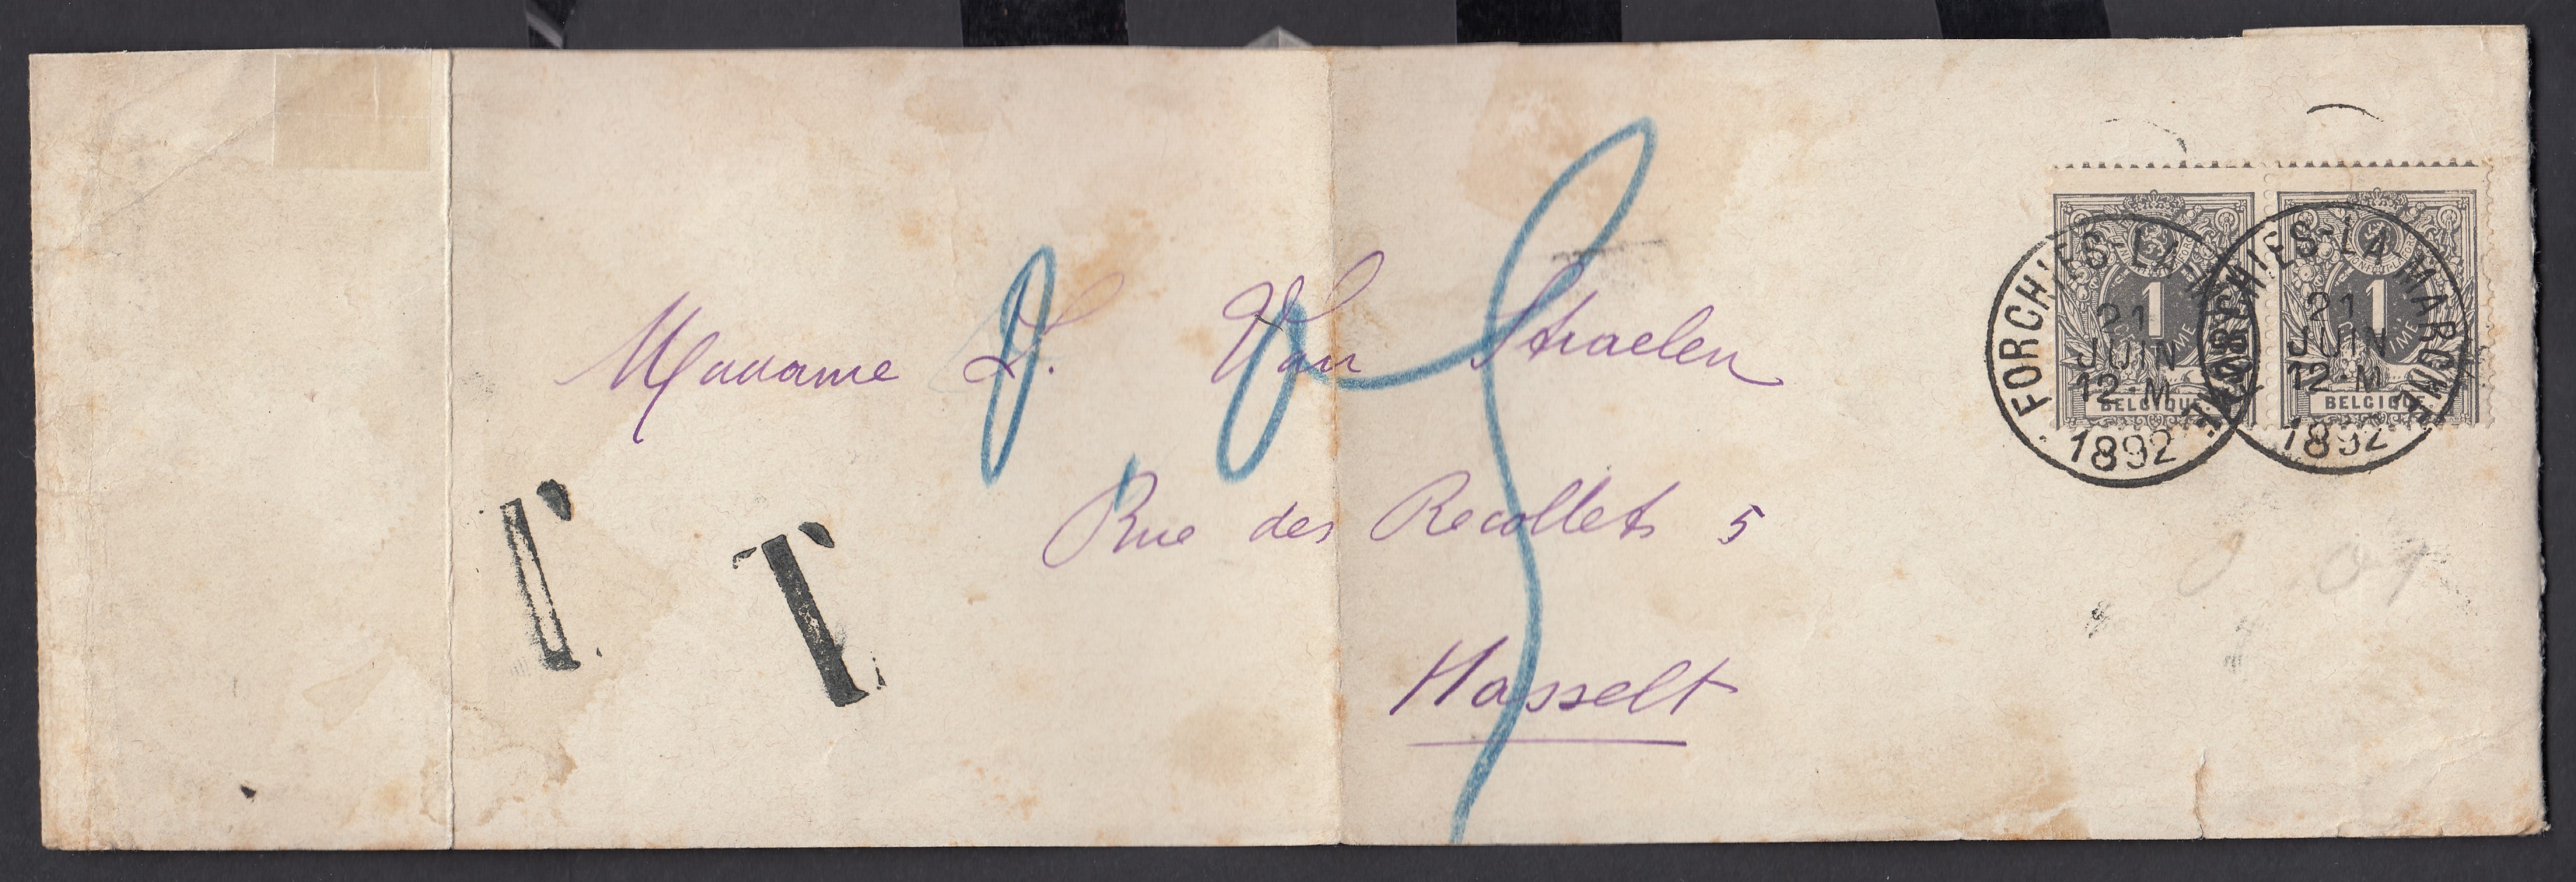 Madame D. Van Straelen
Rue des Recollets 5
Hasselt
T T
FORCHIES-LA-MARCHE
21
JUIN
12-M
1892
FORCHIES-LA-MARCHE
21
JUIN
12-M
1892
1
CENTIME
BELGIQUE
1
CENTIME
BELGIQUE